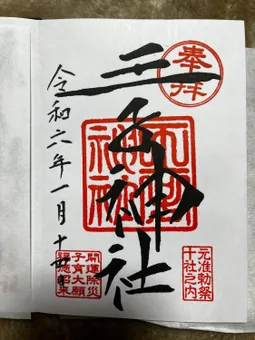 奉拝
元准勅祭
十社之内
王子神社
開運除災
子育大願
招来
令和六年一月十四日